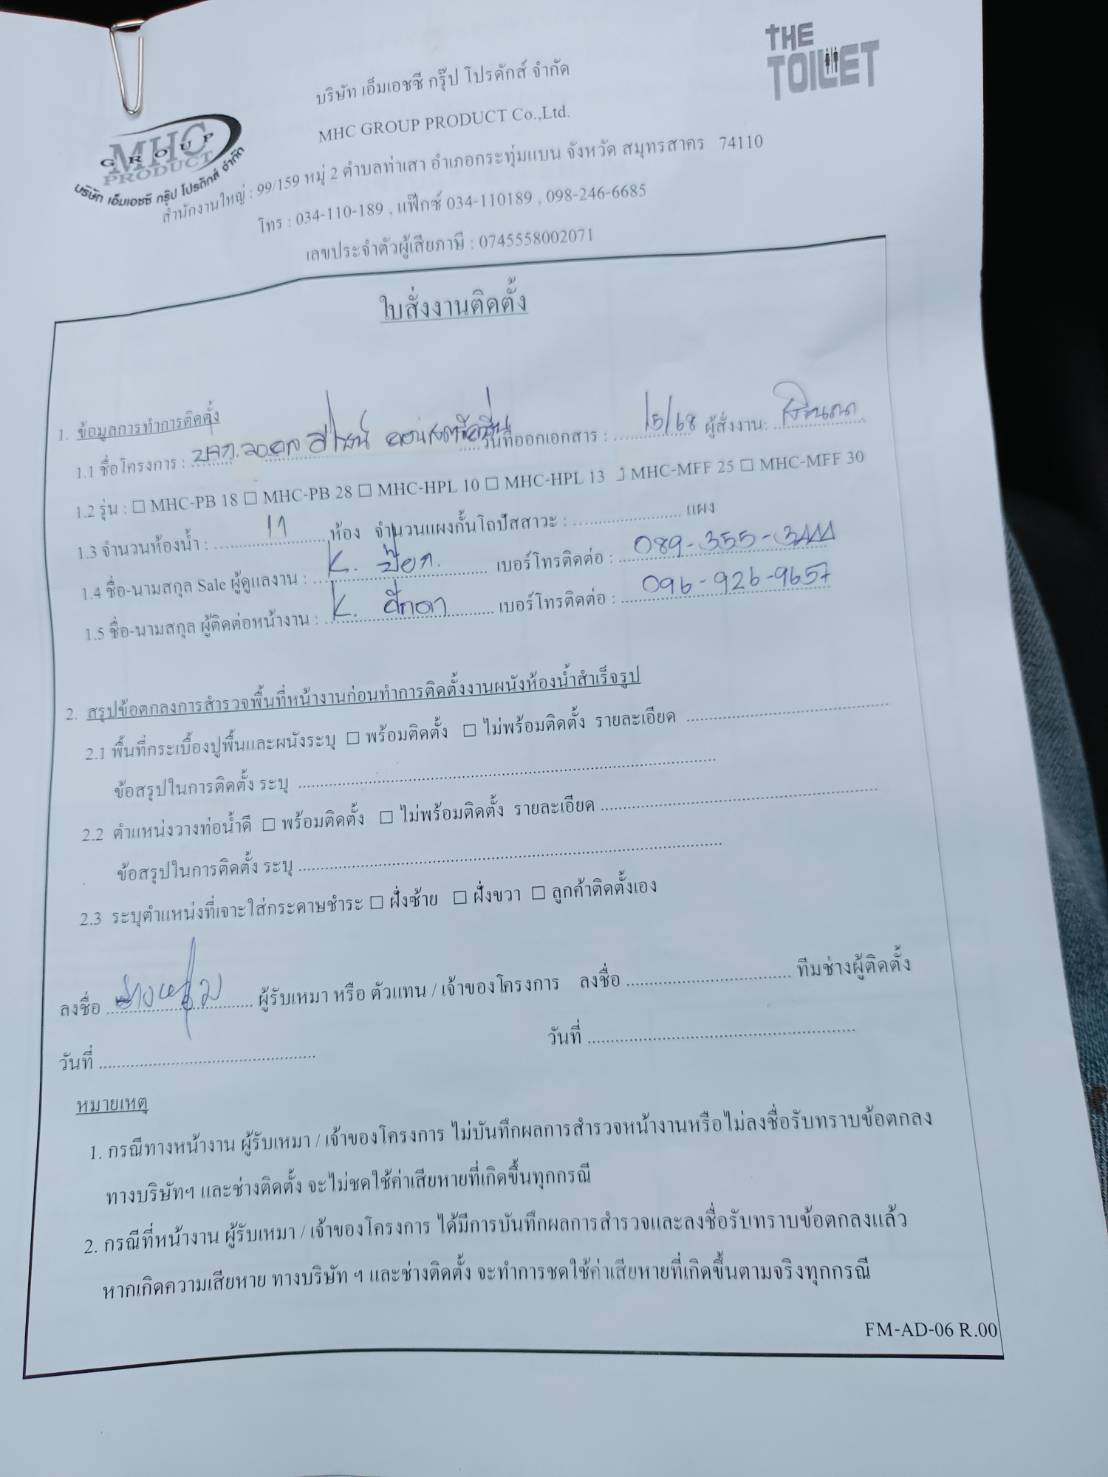 THE
TOILET
MHC
GROUP
PRODUCT
บริษัท เอ็มเอชซี กรุ๊ป โปรดักส์ จำกัด
บริษัท เอ็มเอชซี กรุ๊ป โปรดักส์ จำกัด
MHC GROUP PRODUCT Co.,Ltd.
สำนักงานใหญ่ : 99/159 หมู่ 2 ตำบลท่าเสา อำเภอกระทุ่มแบน จังหวัด สมุทรสาคร 74110
โทร : 034-110-189 , แฟ็กซ์ 034-110189 , 098-246-6685
เลขประจำตัวผู้เสียภาษี : 0745558002071
ใบสั่งงานติดตั้ง
1. ข้อมูลการทำการติดตั้ง
1.1 ชื่อโครงการ : วันที่ออกเอกสาร : 15/68 ผู้สั่งงาน:
1.2 รุ่น : □ MHC-PB 18 □ MHC-PB 28 □ MHC-HPL 10 □ MHC-HPL 13 MHC-MFF 25 □ MHC-MFF 30
1.3 จำนวนห้องน้ำ : 11 ห้อง จำนวนแผงกั้นโถปัสสาวะ : แผง
1.4 ชื่อ-นามสกุล Sale ผู้ดูแลงาน : K. ป๊อก เบอร์โทรติดต่อ : 089-355-
1.5 ชื่อ-นามสกุล ผู้ติดต่อหน้างาน : K. เบอร์โทรติดต่อ : 096-926-9657
2. สรุปข้อตกลงการสำรวจพื้นที่หน้างานก่อนทำการติดตั้งงานผนังห้องน้ำสำเร็จรูป
2.1 พื้นที่กระเบื้องปูพื้นและผนังระบุ □ พร้อมติดตั้ง □ ไม่พร้อมติดตั้ง รายละเอียด
ข้อสรุปในการติดตั้ง ระบุ
2.2 ตำแหน่งวางท่อน้ำดี □ พร้อมติดตั้ง □ ไม่พร้อมติดตั้ง รายละเอียด
ข้อสรุปในการติดตั้ง ระบุ
2.3 ระบุตำแหน่งที่เจาะใส่กระดาษชำระ □ ฝั่งซ้าย □ ฝั่งขวา □ ลูกค้าติดตั้งเอง
ลงชื่อ ผู้รับเหมา หรือ ตัวแทน / เจ้าของโครงการ ลงชื่อ ทีมช่างผู้ติดตั้ง
วันที่ วันที่
หมายเหตุ
1. กรณีทางหน้างาน ผู้รับเหมา / เจ้าของโครงการ ไม่บันทึกผลการสำรวจหน้างานหรือไม่ลงชื่อรับทราบข้อตกลง
ทางบริษัทฯ และช่างติดตั้ง จะไม่ชดใช้ค่าเสียหายที่เกิดขึ้นทุกกรณี
2. กรณีที่หน้างาน ผู้รับเหมา / เจ้าของโครงการ ได้มีการบันทึกผลการสำรวจและลงชื่อรับทราบข้อตกลงแล้ว
หากเกิดความเสียหาย ทางบริษัท ฯ และช่างติดตั้ง จะทำการชดใช้ค่าเสียหายที่เกิดขึ้นตามจริงทุกกรณี
FM-AD-06 R.00